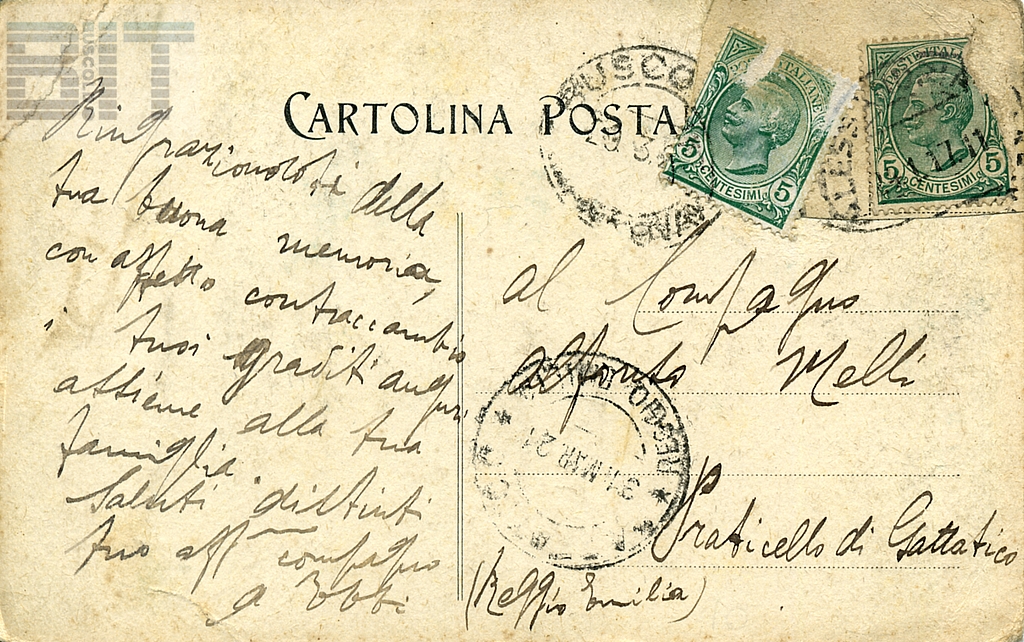 BUSCO
BIT
CARTOLINA POSTA
BUSCO
POSTE ITALIANE
5 CENTESIMI 5
POSTE ITALI
5 CENTESIMI 5
Ringraziandoti della
tua buona memoria,
con affetto contraccambio
i tuoi graditi auguri
assieme alla tua
famiglia.
Saluti distinti
tuo aff compagno
al Compagno
Melli
REGGIO
31 MAR 21
Praticello di Gattatico
(Reggio Emilia)